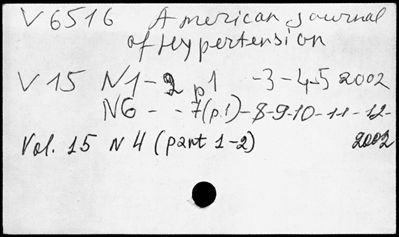 V 6516 American Journal
of Hypertension
V 15 N1-2 p1 -3-4-5 2002
N6 - - 7(p.1)-8-9-10-11-12-
Vol. 15 N 4 (part 1-2) 2002